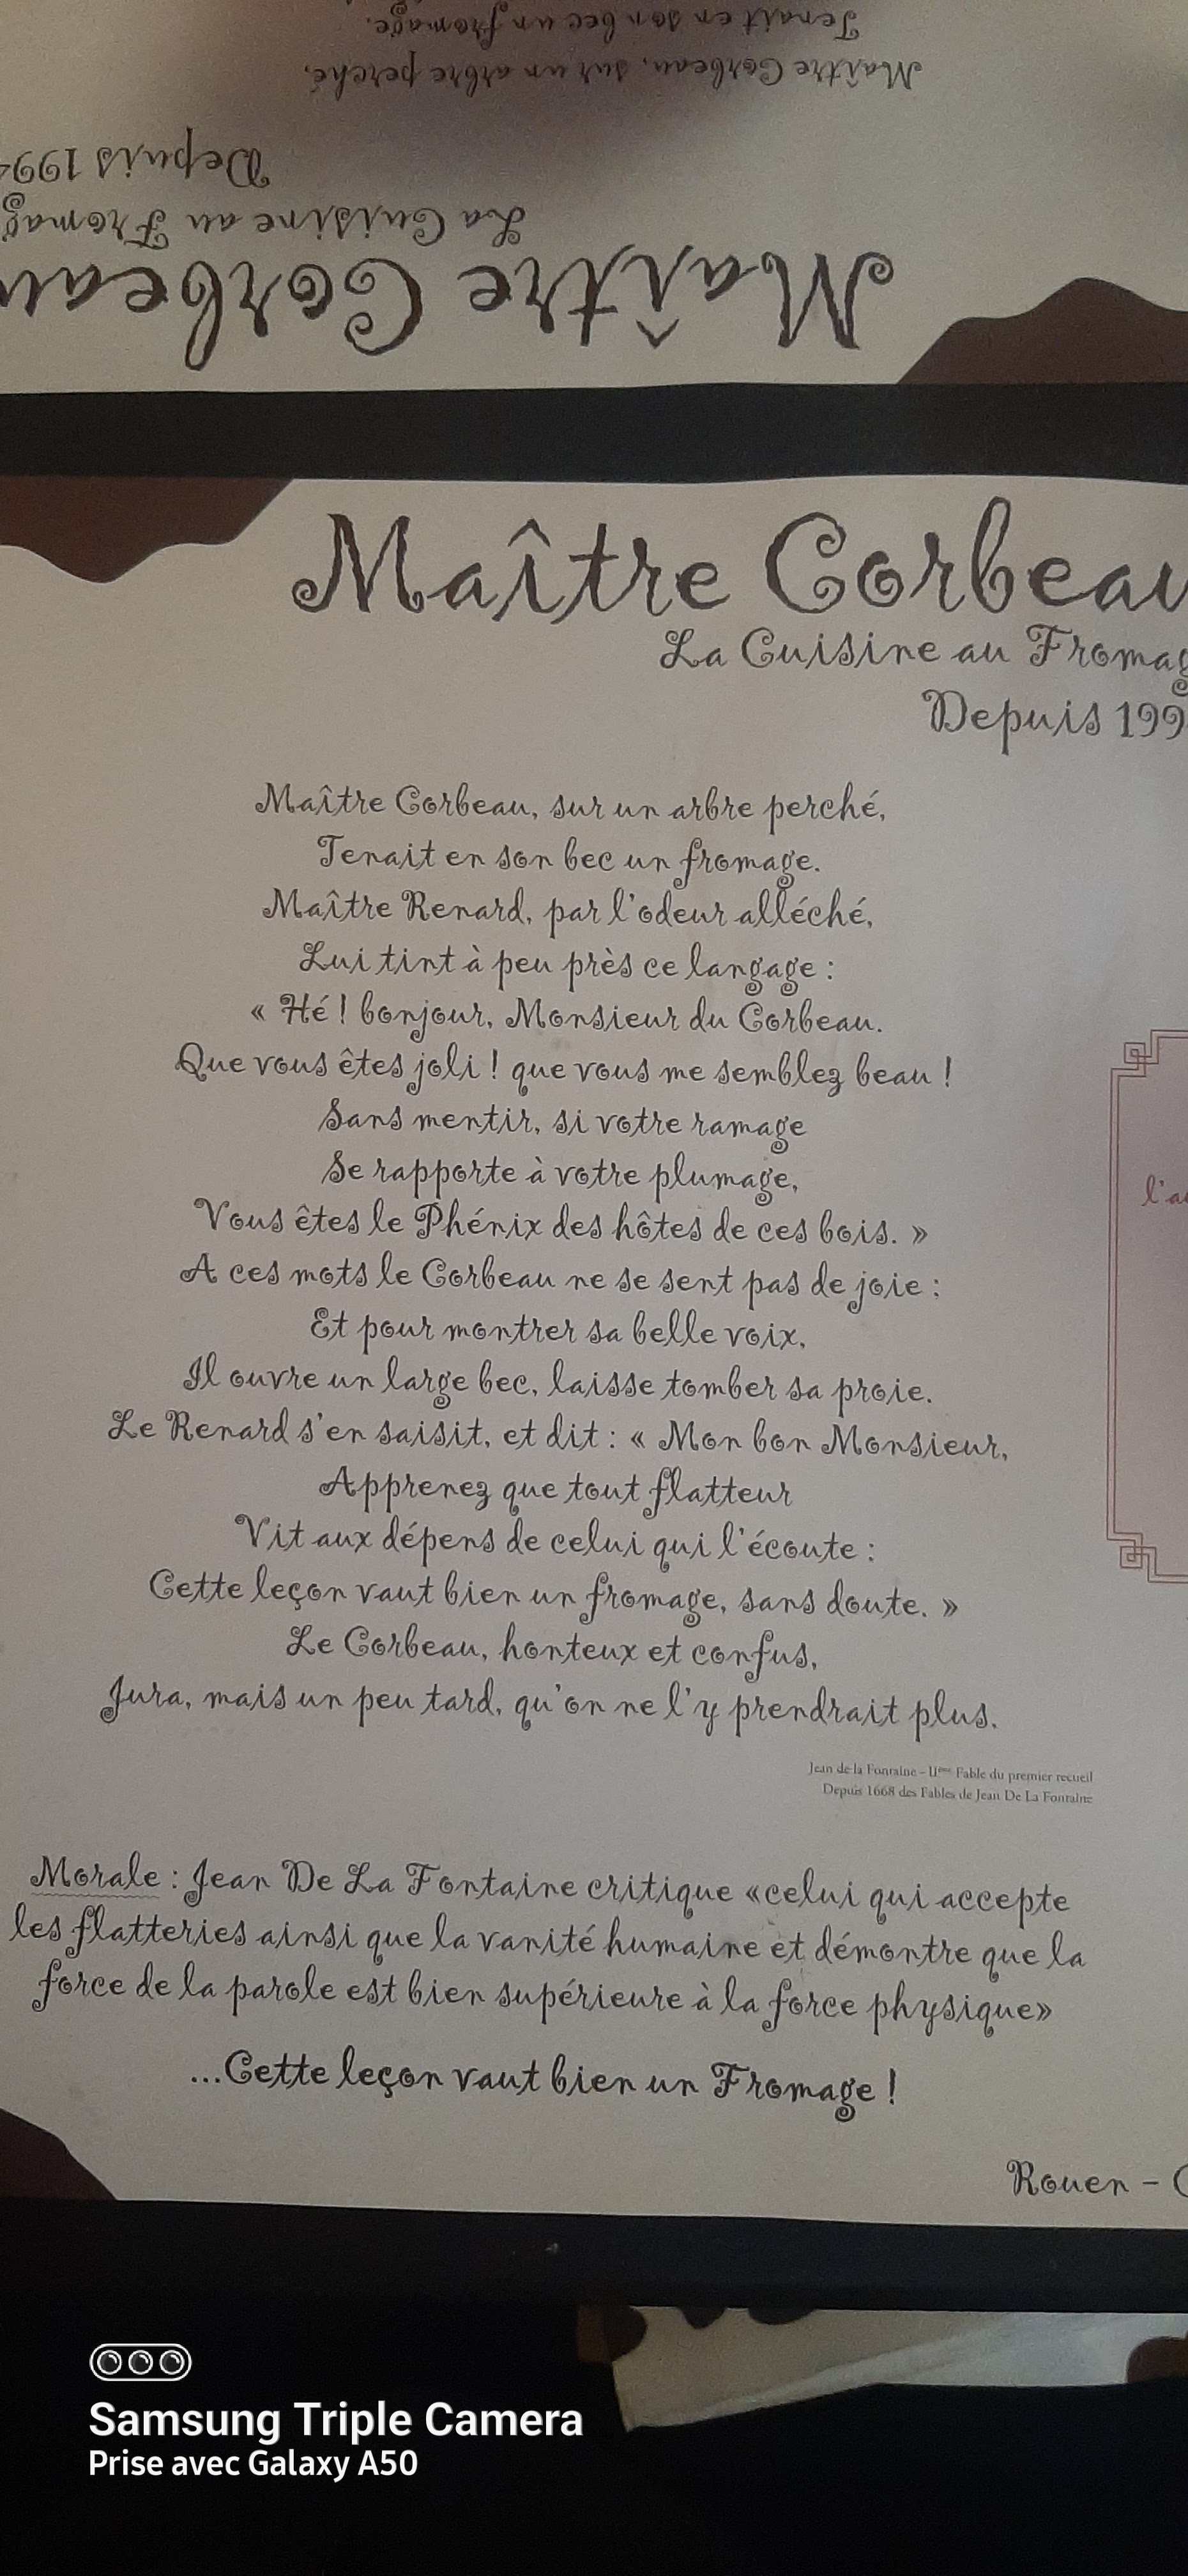 Tenait en son bec un fromage.
Maître Corbeau, sur un arbre perché,
Depuis 199
La Cuisine au Fromag
Maître Corbeau
Maître Corbeau
La Cuisine au Fromag
Depuis 199
Maître Corbeau, sur un arbre perché,
Tenait en son bec un fromage.
Maître Renard, par l'odeur alléché,
Lui tint à peu près ce langage :
« Hé ! bonjour, Monsieur du Corbeau.
Que vous êtes joli ! que vous me semblez beau !
Sans mentir, si votre ramage
Se rapporte à votre plumage,
Vous êtes le Phénix des hôtes de ces bois. »
A ces mots le Corbeau ne se sent pas de joie :
Et pour montrer sa belle voix,
Il ouvre un large bec, laisse tomber sa proie.
Le Renard s'en saisit, et dit : « Mon bon Monsieur,
Apprenez que tout flatteur
Vit aux dépens de celui qui l'écoute :
Cette leçon vaut bien un fromage, sans doute. »
Le Corbeau, honteux et confus,
Jura, mais un peu tard, qu'on ne l'y prendrait plus.
Jean de la Fontaine - IIème Fable du premier recueil
Depuis 1668 des Fables de Jean De La Fontaine
Morale : Jean De La Fontaine critique «celui qui accepte
les flatteries ainsi que la vanité humaine et démontre que la
force de la parole est bien supérieure à la force physique»
...Cette leçon vaut bien un Fromage !
Rouen -
Samsung Triple Camera
Prise avec Galaxy A50